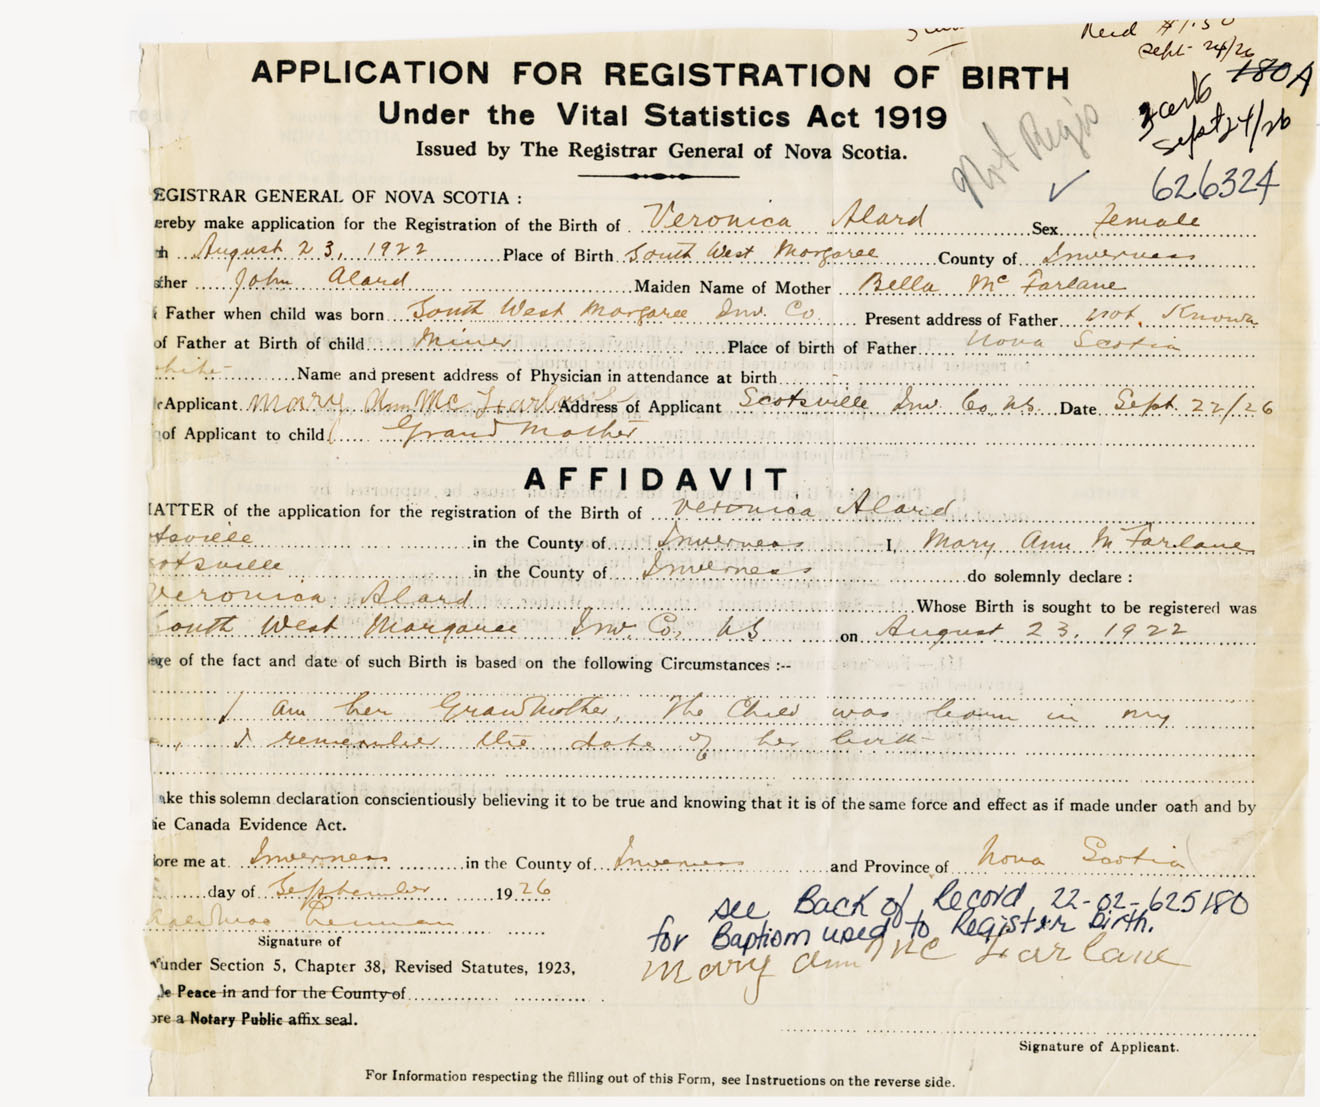 Recd $1.50
Sept 24/26
180A
Sept 24/26
Not Regis
626324
APPLICATION FOR REGISTRATION OF BIRTH
Under the Vital Statistics Act 1919
Issued by The Registrar General of Nova Scotia.
EGISTRAR GENERAL OF NOVA SCOTIA :
ereby make application for the Registration of the Birth of Veronica Alard Sex female
th August 23, 1922 Place of Birth South West Margaree County of Inverness
ther John Alard Maiden Name of Mother Bella McFarlane
Father when child was born South West Margaree Inv. Co. Present address of Father not Known
of Father at Birth of child Miner Place of birth of Father Nova Scotia
hite Name and present address of Physician in attendance at birth
Applicant Mary Ann McFarlane Address of Applicant Scotsville Inv Co NS. Date Sept 22/26
of Applicant to child Grand Mother
AFFIDAVIT
ATTER of the application for the registration of the Birth of Veronica Alard
tsville in the County of Inverness I, Mary Ann McFarlane
otsville in the County of Inverness do solemnly declare :
Veronica Alard Whose Birth is sought to be registered was
South West Margaree Inv. Co. NS on August 23, 1922
ge of the fact and date of such Birth is based on the following Circumstances :--
I am her Grandmother, The Child was born in my
I remember the date of her birth
ake this solemn declaration conscientiously believing it to be true and knowing that it is of the same force and effect as if made under oath and by
e Canada Evidence Act.
ore me at Inverness in the County of Inverness and Province of Nova Scotia
day of September 1926
see Back of Record 22-02-625180
for Baptism used to Register Birth.
Signature of
Mary Ann McFarlane
under Section 5, Chapter 38, Revised Statutes, 1923,
e Peace in and for the County of
ore a Notary Public affix seal.
Signature of Applicant.
For Information respecting the filling out of this Form, see Instructions on the reverse side.